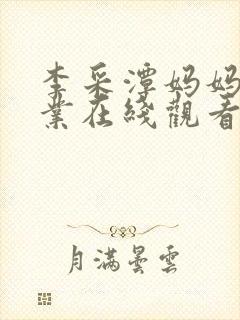 李采潭妈妈
業在綫觀看
月滿曇雲